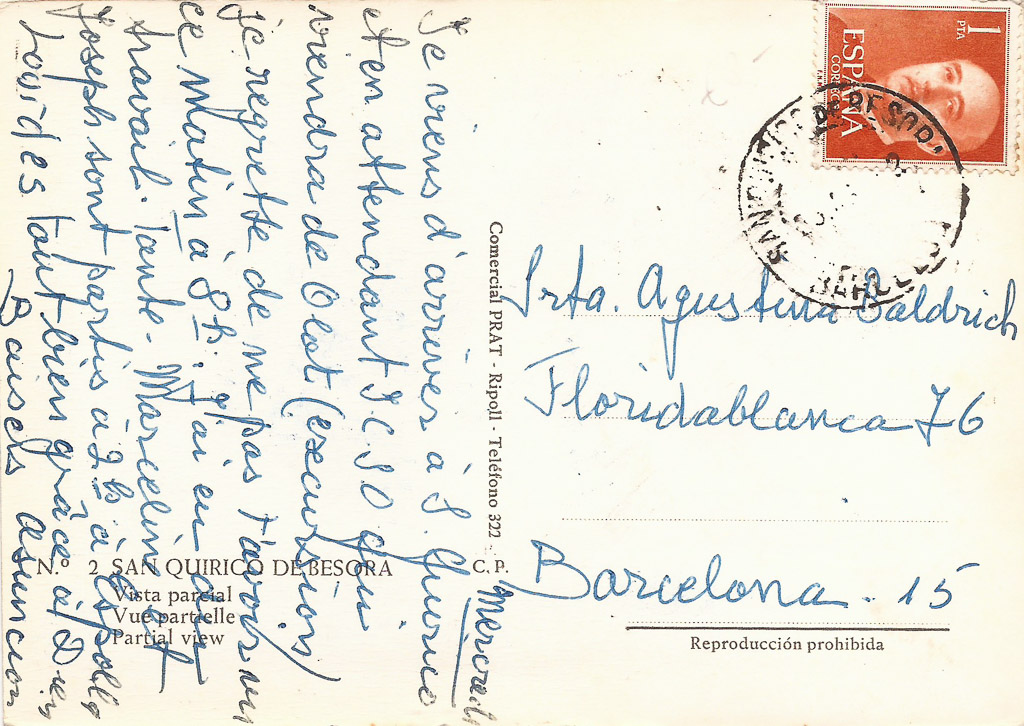 Mercredi
Je viens d'arriver à S. Quirico
et en attendant J.C.S.O qui
viendra de Olot (excursion)
je regrette de ne pas t'avoir vu
ce matin à 8h. J'ai eu du
travail. Tante Marceline et
Joseph sont partis à 2h à Espolla
tout bien grâce à Dieu
Baisers Asuncion
Nº 2 SAN QUIRICO DE BESORA
Vista parcial
Vue partielle
Partial view
C. P.
Comercial PRAT - Ripoll - Teléfono 322
1 PTA
ESPAÑA
CORREOS
SAN QUIRICO DE BESORA
BARCELONA
Srta. Agustina Saldrich
Floridablanca 76
Barcelona. 15
Reproducción prohibida